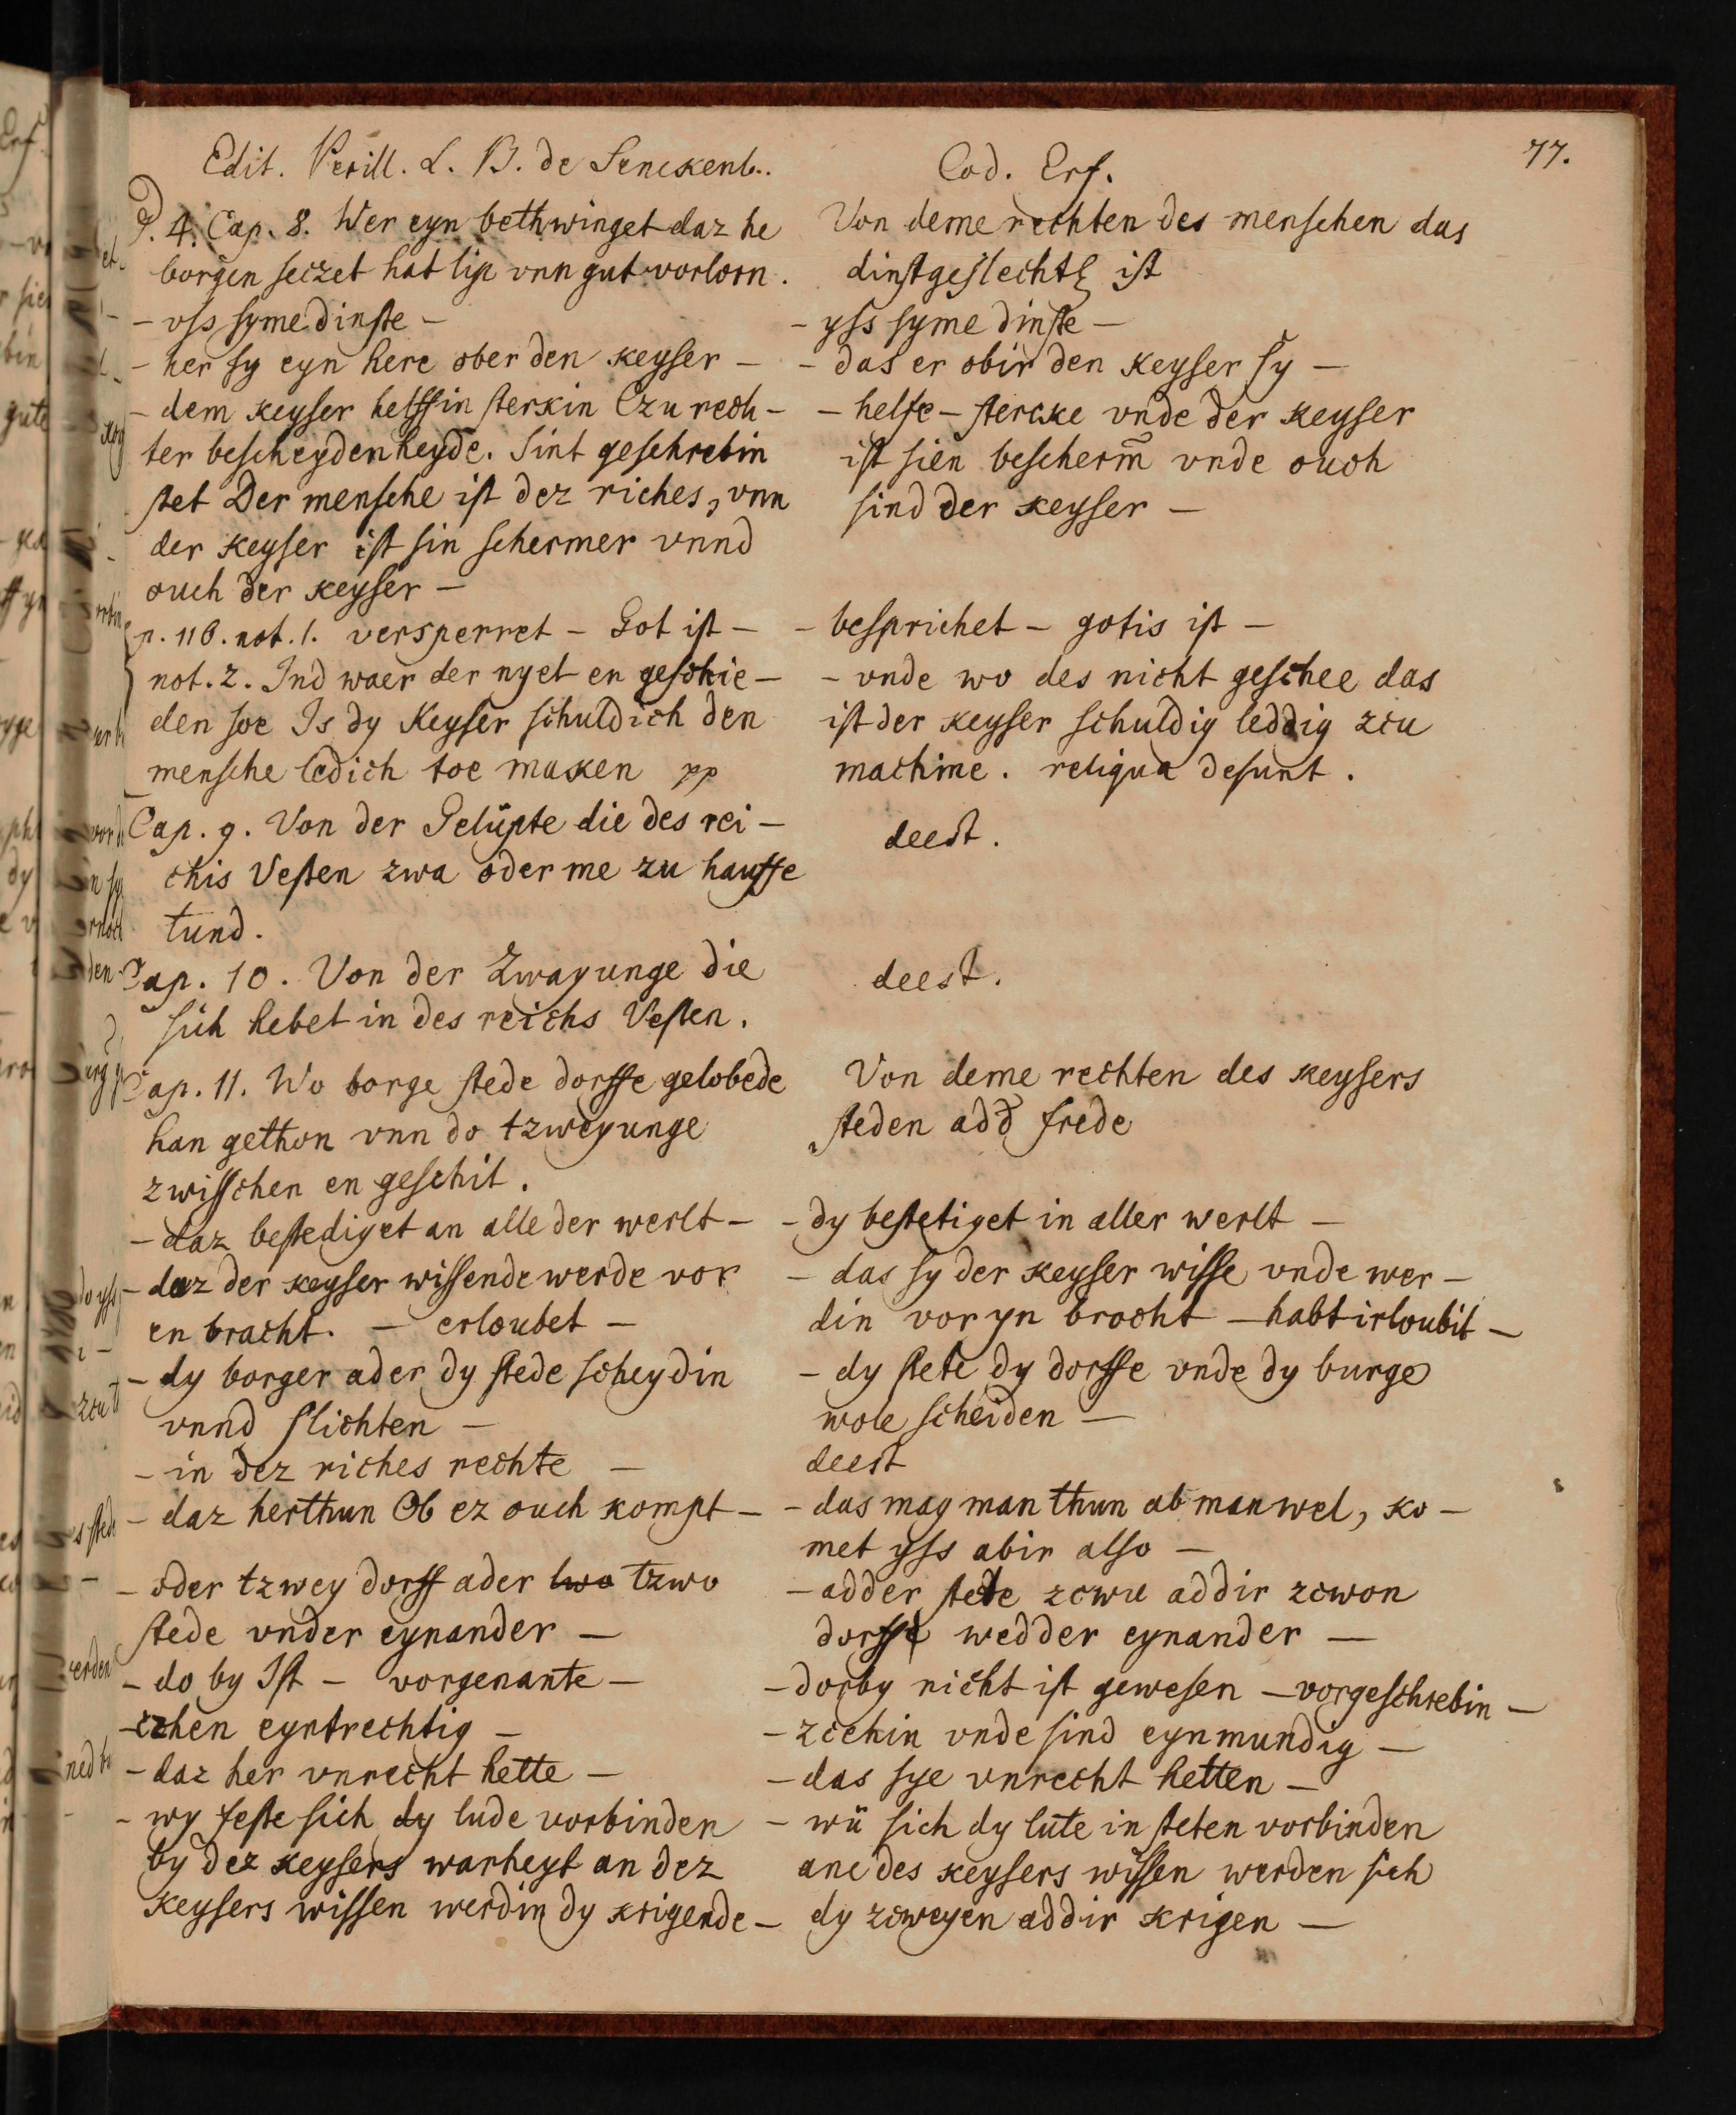 77.
Edit. Perill. L. B. de Senckenb.
P. 4. Cap. 8. Wer eyn bethwinget daz he
borgen seczet hat lip vnn gut vorlorn.
- vss syme dinste -
- her sy eyn here ober den keyser -
- dem keyser helffin sterkin Czu rech-
ter bescheydenheyde. Sint geschrebin
stet Der mensche ist dez riches, vnn
der keyser ist sin schermer vnnd
ouch der keyser -
p. 116. not. 1. versperret - Got ist -
not. 2. Ind waer der nyet en geschie-
den soe Is dy Keyser schuldich den
mensche ledich toe maken pp
Cap. 9. Von der Gelüpte die des rei-
chis Vesten zwa oder me zu hauffe
tund.
Cap. 10. Von der Zwayunge die
sich hebet in des reichs Vesten.
Cap. 11. Wo borge stede dorffe gelobede
han gethon vnn do tzweyunge
zwisschen en geschit.
- daz bestediget an alle der werlt -
- daz der keyser wissende werde vor
en bracht. - erloubet -
- dy borger ader dy stede scheydin
vnnd slichten -
- in dez riches rechte -
- daz herthun Ob ez ouch kompt -
- oder tzwey dorff ader two tzwo
stede vnder eynander -
- do by Ist - vorgenante -
- czhen eyntrechtig -
- daz her vnrecht hette -
- wy feste sich dy lude vorbinden
by dez keysers warheyt an dez
keysers wissen werdin dy krigende -
Cod. Erf.
Von deme rechten des menschen das
dinstgeslecht ist
- yss syme dinste -
- das er obir den keyser sy -
- helfe - stercke vnde der keyser
ist sien bescherm̃ vnde ouch
sind der keyser -
- besprichet - gotis ist -
- vnde wo des nicht geschee das
ist der keyser schuldig leddig zcu
machine. reliqua desunt.
deest.
deest.
Von deme rechten des keysers
steden add frede
- dy bestetiget in aller werlt -
- das sy der keyser wisse vnde wer-
din vor yn brocht - habt irloubit -
- dy stete dy dorffe vnde dy burge
wole scheiden -
deest
- das mag man thun ab man wel, ko-
met yss abir also -
- adder stete zcwu addir zcwon
dorffe wedder eynander -
- dorby nicht ist gewesen - vorgeschrebin -
- zcehin vnde sind eynmundig -
- das sye vnrecht hetten -
- wü sich dy lute in steten vorbinden
ane des keysers wissen werden sich
dy zcweyen addir krigen -